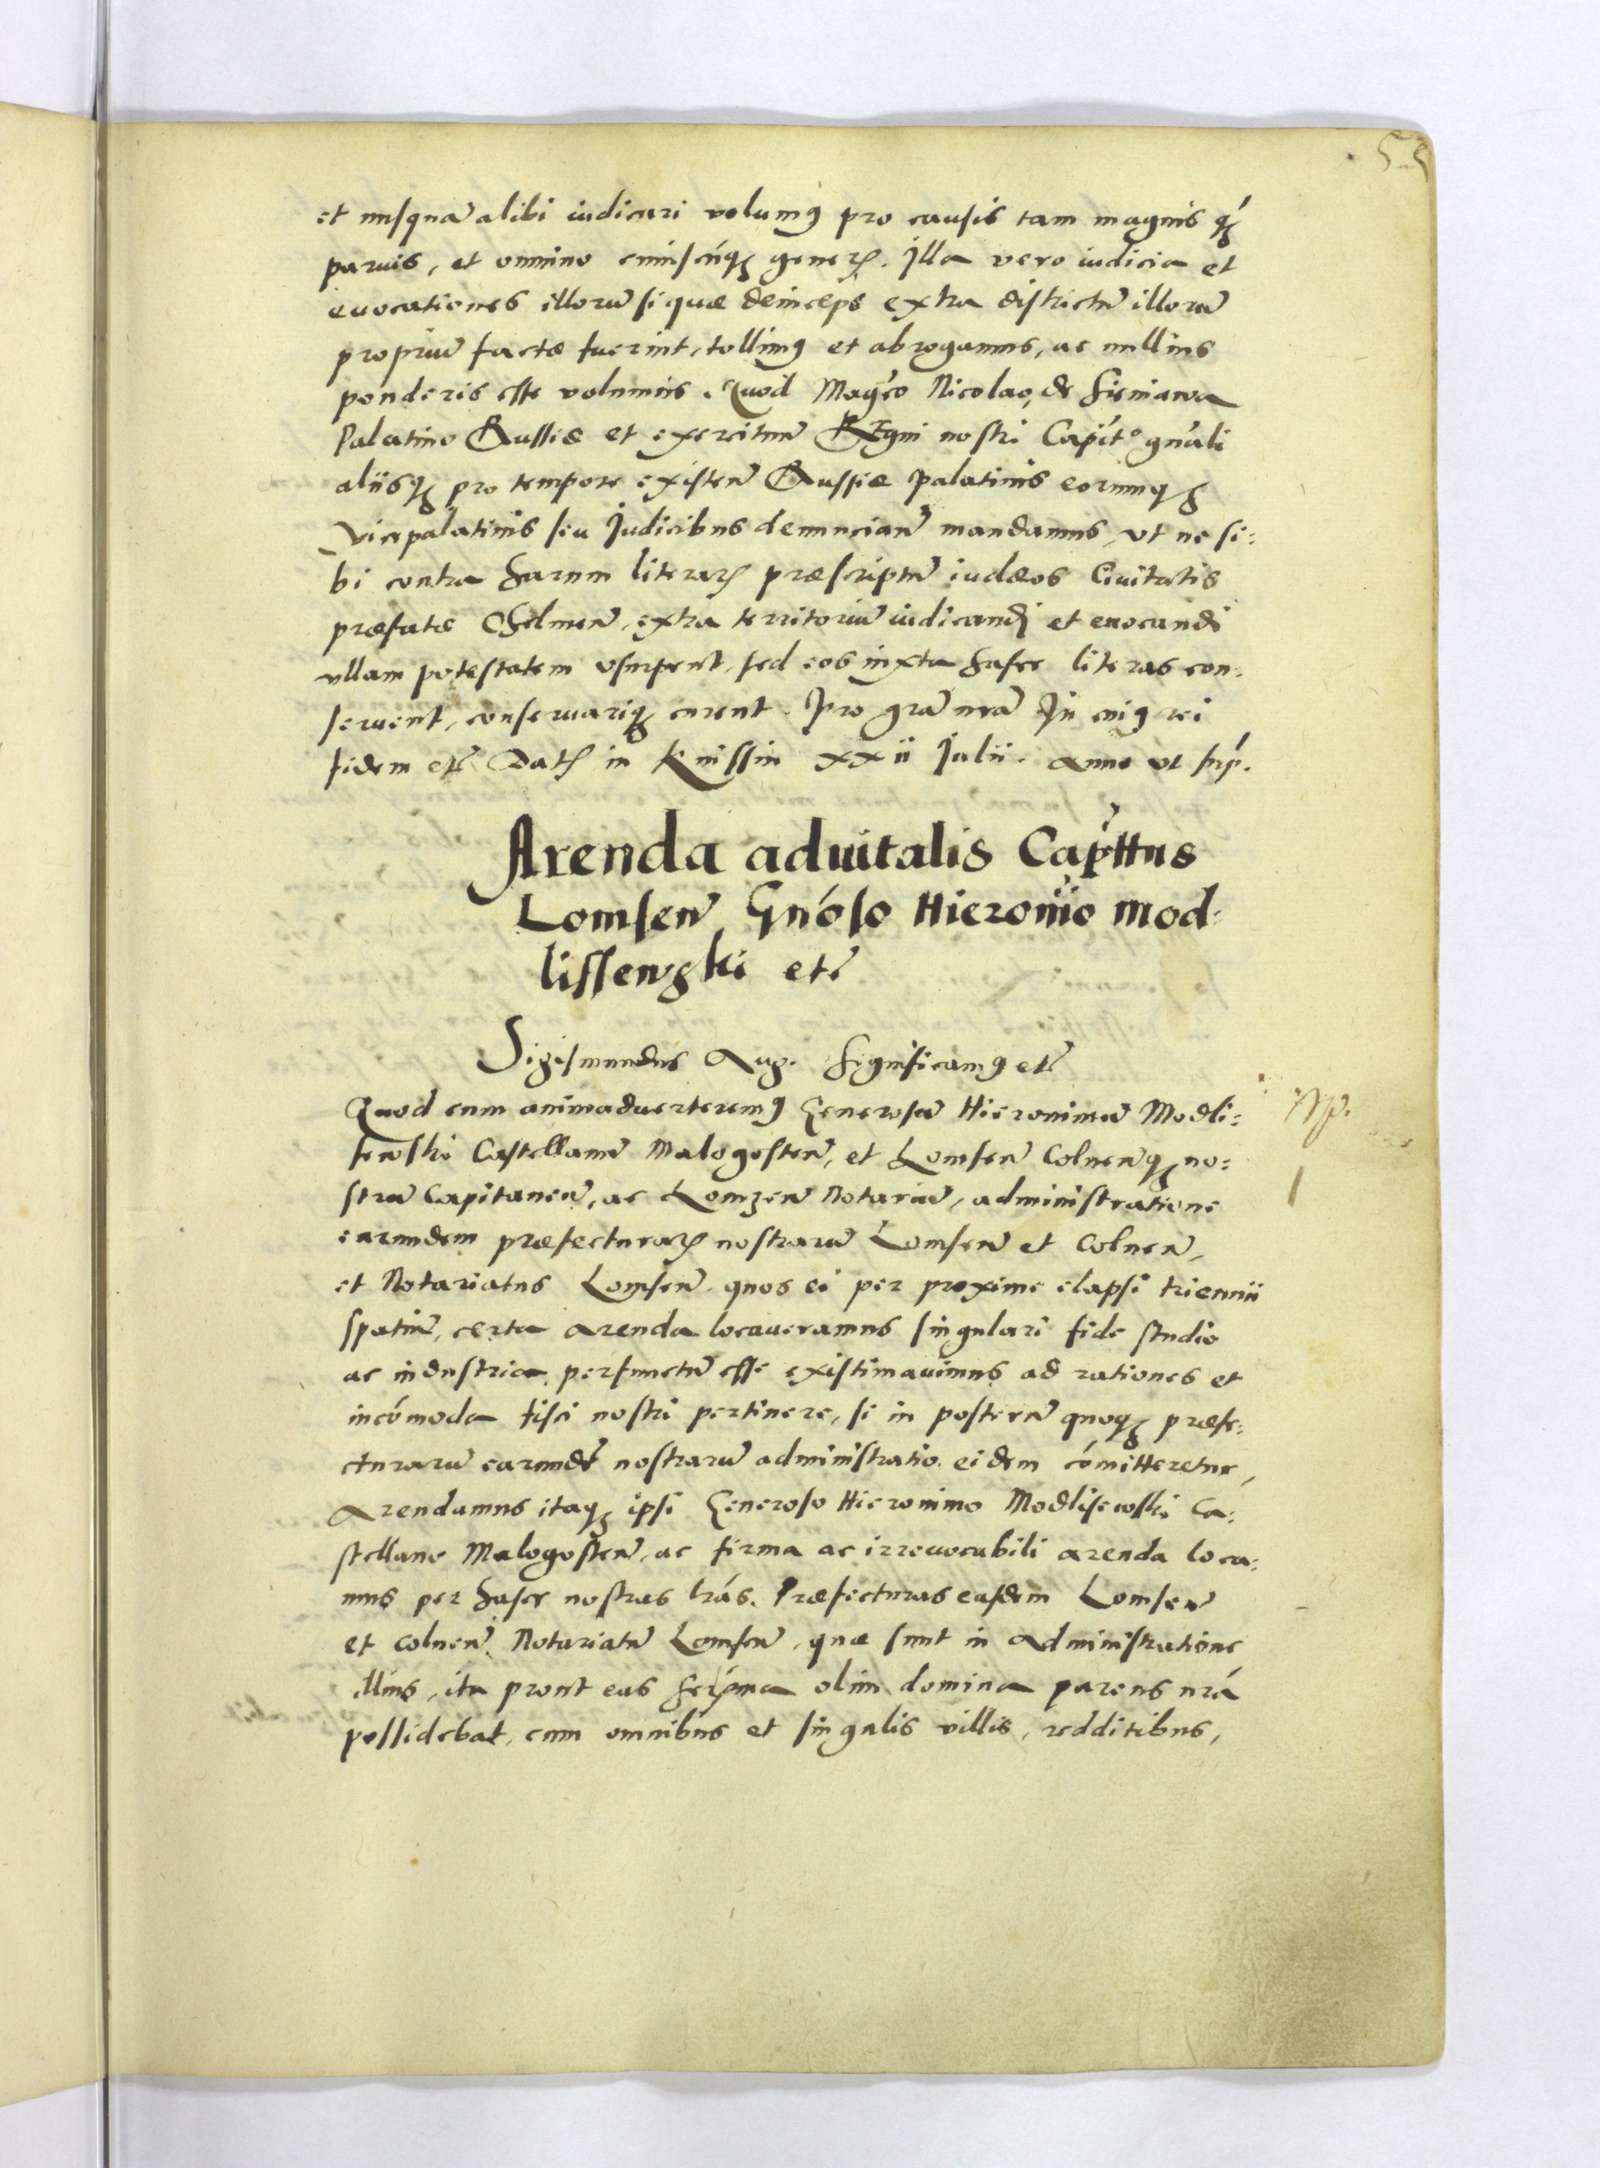 55
et nusquã alibi iudicari volumꝰ pro causis tam magnis ꝙ̃
paruis, et omnino cuiuscũqꝫ generꝭ. Illa vero iudicia et
euocationes illorũ si quæ deinceps extra districtũ illorũ
propriũ factæ fuerint, tollimꝰ et abrogamus, ac nullius
ponderis esse volumus. Quod Magco Nicolao de Sieniawa
Palatino Russiæ et exercituũ Regni nostri Capitº gnali
aliisqꝫ pro tempore existeñ Russiæ palatinis eorumqꝫ
vicepalatinis seu Iudicibus denuncianẽ mandamus, vt ne si:
bi contra harum literarꝝ præscriptũ iudæos Ciuitatis
præfatæ Chelmeñ, extra territoriũ iudicandi et euocandi
vllam potestatem vsurpent, sed eos iuxta hasce literas con:
seruent, conseruariqꝫ curent. Pro grã nrã In cuiꝰ rei
fidem etc̃ Datꝭ in Knissin xxii Iulii. Anno vt sup̃.
Arenda aduitalis Capittus
Lomseñ Gnoso Hieronimo Mod:
lissewski etc̃
Sigismundus Aug. Significamꝰ etc̃
Quod cum animaduerteremꝰ Generosũ Hieronimũ Modli:
sewski Castellanũ Malogosteñ, et Lomseñ Colneñqꝫ no:
strũ Capitaneũ, ac Lomzeñ Notariũ, administratione
earumdem præfecturarꝝ nostrarũ Lomseñ et Colneñ,
et Notariatus Lomseñ quos ei per proxime elapsi triennii
spatiũ, certa arenda locaueramus singulari fide studio
ac industria perfunctũ esse existimauimus ad rationes et
incõmoda fisci nostri pertinere, si in posterũ quoqꝫ præfe:
cturarũ earumdẽ nostrarũ administratio eidem cõmitteretur,
Arendamus itaqꝫ ipsi Generoso Hieronimo Modlisewski Ca:
stellano Malogosteñ, ac firma ac irreuocabili arenda loca:
mus per hasce nostras lras. Præfecturas easdem Lomseñ
et Colneñ Notariatũ Lomseñ, quæ sunt in Administratione
illius, ita prout eas Serma olim domina parens nrã
possidebat, cum omnibus et singulis villis, redditibus,